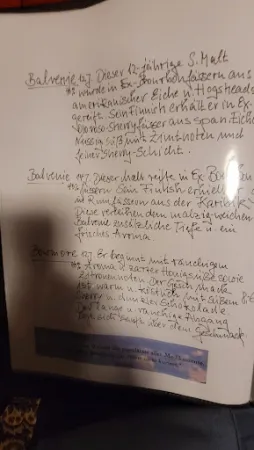 Balvenie 12J Dieser 12-jährige S. Malt
wurde in Ex-Bourbonfässern aus
amerikanischer Eiche u. Hogsheads
gereift. Sein Finish erhält er in Ex-
Oloroso-Sherryfässer aus span. Eiche
Nussig süß mit Zimtnoten und
feiner Sherry-Schicht.
Balvenie 14J. Dieser Malt reift in Ex-Bourbon
fässern Sein Finish er hält er
in Rumfässern aus der Karibik
Diese verleihen dem malzig-weichen
Balvenie zusätzliche Tiefe u. ein
frisches Aroma.
Bowmore 12J Er beginnt mit rauchigem
Aroma u. zarter Honigsüße sowie
Zitronennoten Der Geschmack
ist warm u. köstlich mit süßem
Sherry u. dunkler Schokolade.
Der lange u. rauchige Ausgang
sanft über dem Geschmack.